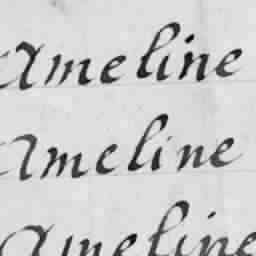 Ameline
Ameline
Ameline